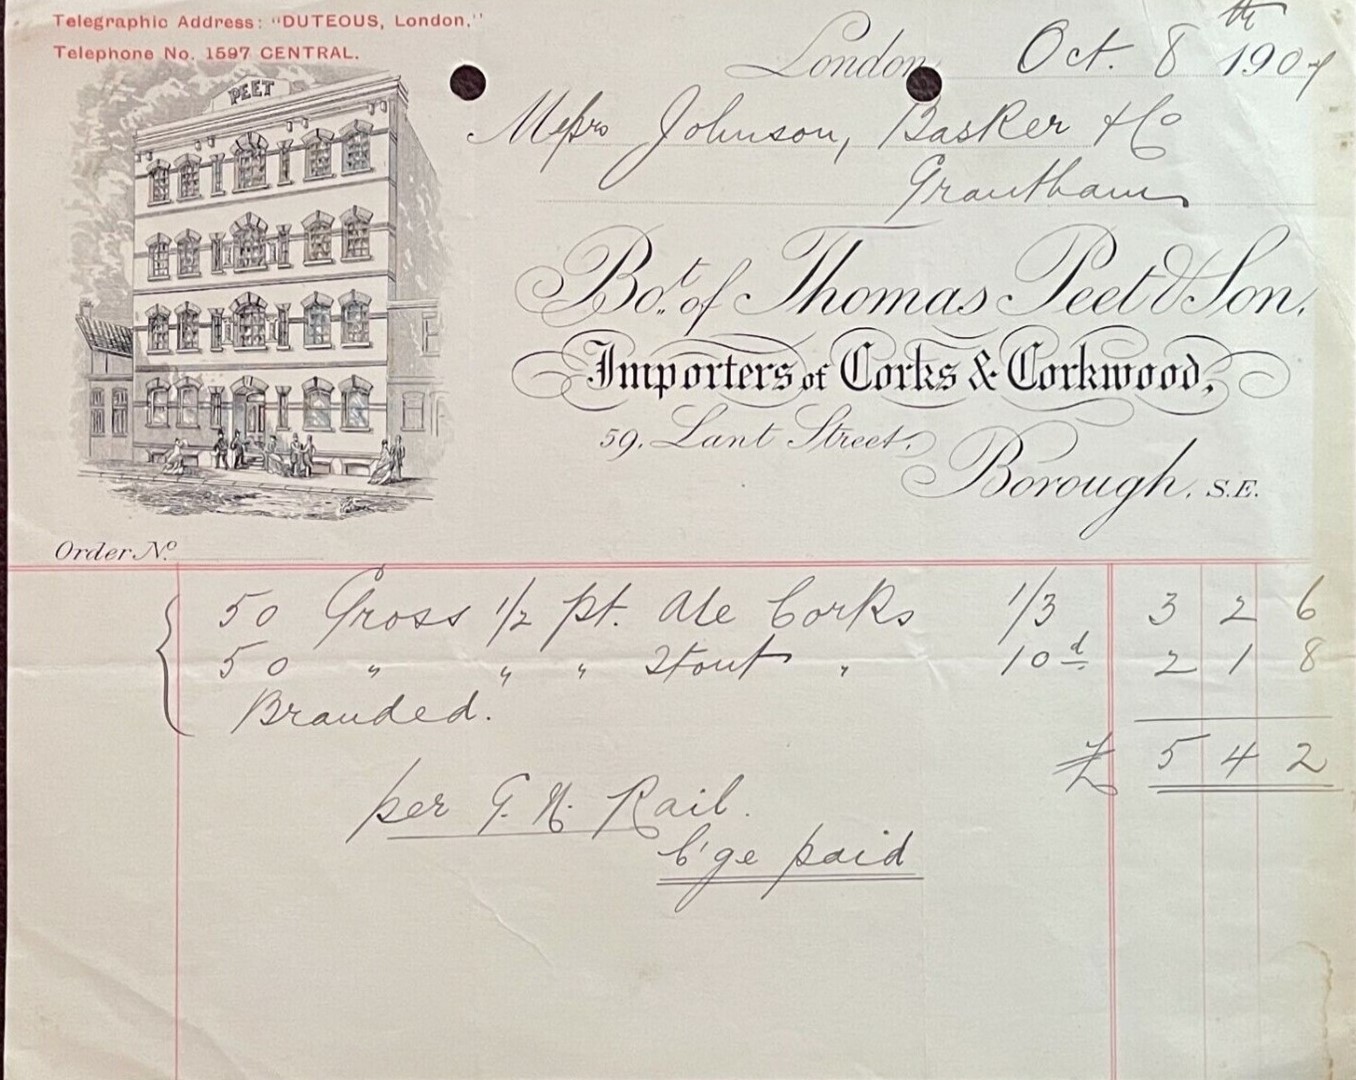 Telegraphic Address: "DUTEOUS, London."
Telephone No. 1597 CENTRAL.
PEET
London, Oct. 8th 1904
Messrs Johnson, Basker & Co
Grantham
Bot. of Thomas Peet & Son,
Importers of Corks & Corkwood,
59, Lant Street,
Borough, S.E.
Order No.
50 Gross 1/2 pt. Ale Corks 1/3 3 2 6
50 " " " Stout " 10d 2 1 8
Branded.
£ 5 4 2
per G. N. Rail.
C'ge paid